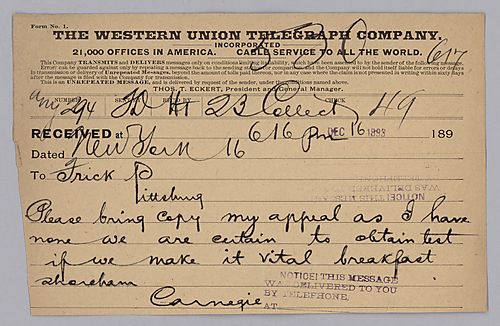 Form No. 1.
THE WESTERN UNION TELEGRAPH COMPANY.
INCORPORATED
21,000 OFFICES IN AMERICA. CABLE SERVICE TO ALL THE WORLD.
617
This Company TRANSMITS and DELIVERS messages only on conditions limiting its liability, which have been assented to by the sender of the following message.
Error can be guarded against only by repeating a message back to the sending station for comparison, and the Company will not hold itself liable for errors or delays
in transmission or delivery of Unrepeated Messages, beyond the amount of tolls paid thereon, nor in any case where the claim is not presented in writing within sixty days
after the message is filed with the Company for transmission.
This is an UNREPEATED MESSAGE, and is delivered by request of the sender, under the conditions named above.
THOS. T. ECKERT, President and General Manager.
NUMBER CHECK
294 23 Collect 49
RECEIVED at 616 Pm DEC 16 1893 189
Dated New York 16
To Frick
Pittsburg
Please bring copy my appeal as I have
none we are certain to obtain test
if we make it vital breakfast
shoreham
Carnegie
NOTICE! THIS MESSAGE
WAS DELIVERED TO YOU
BY TELEPHONE,
AT